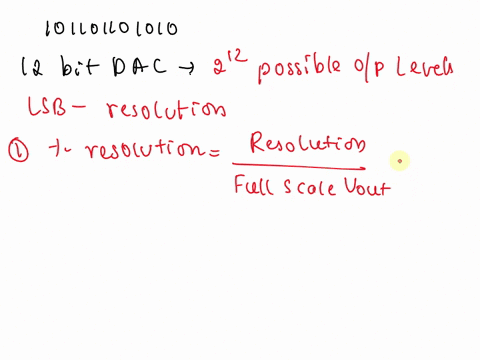 101101101010
12 bit DAC → 2^12 possible o/p Levels
LSB - resolution
① % resolution = Resolution
Full Scale Vout